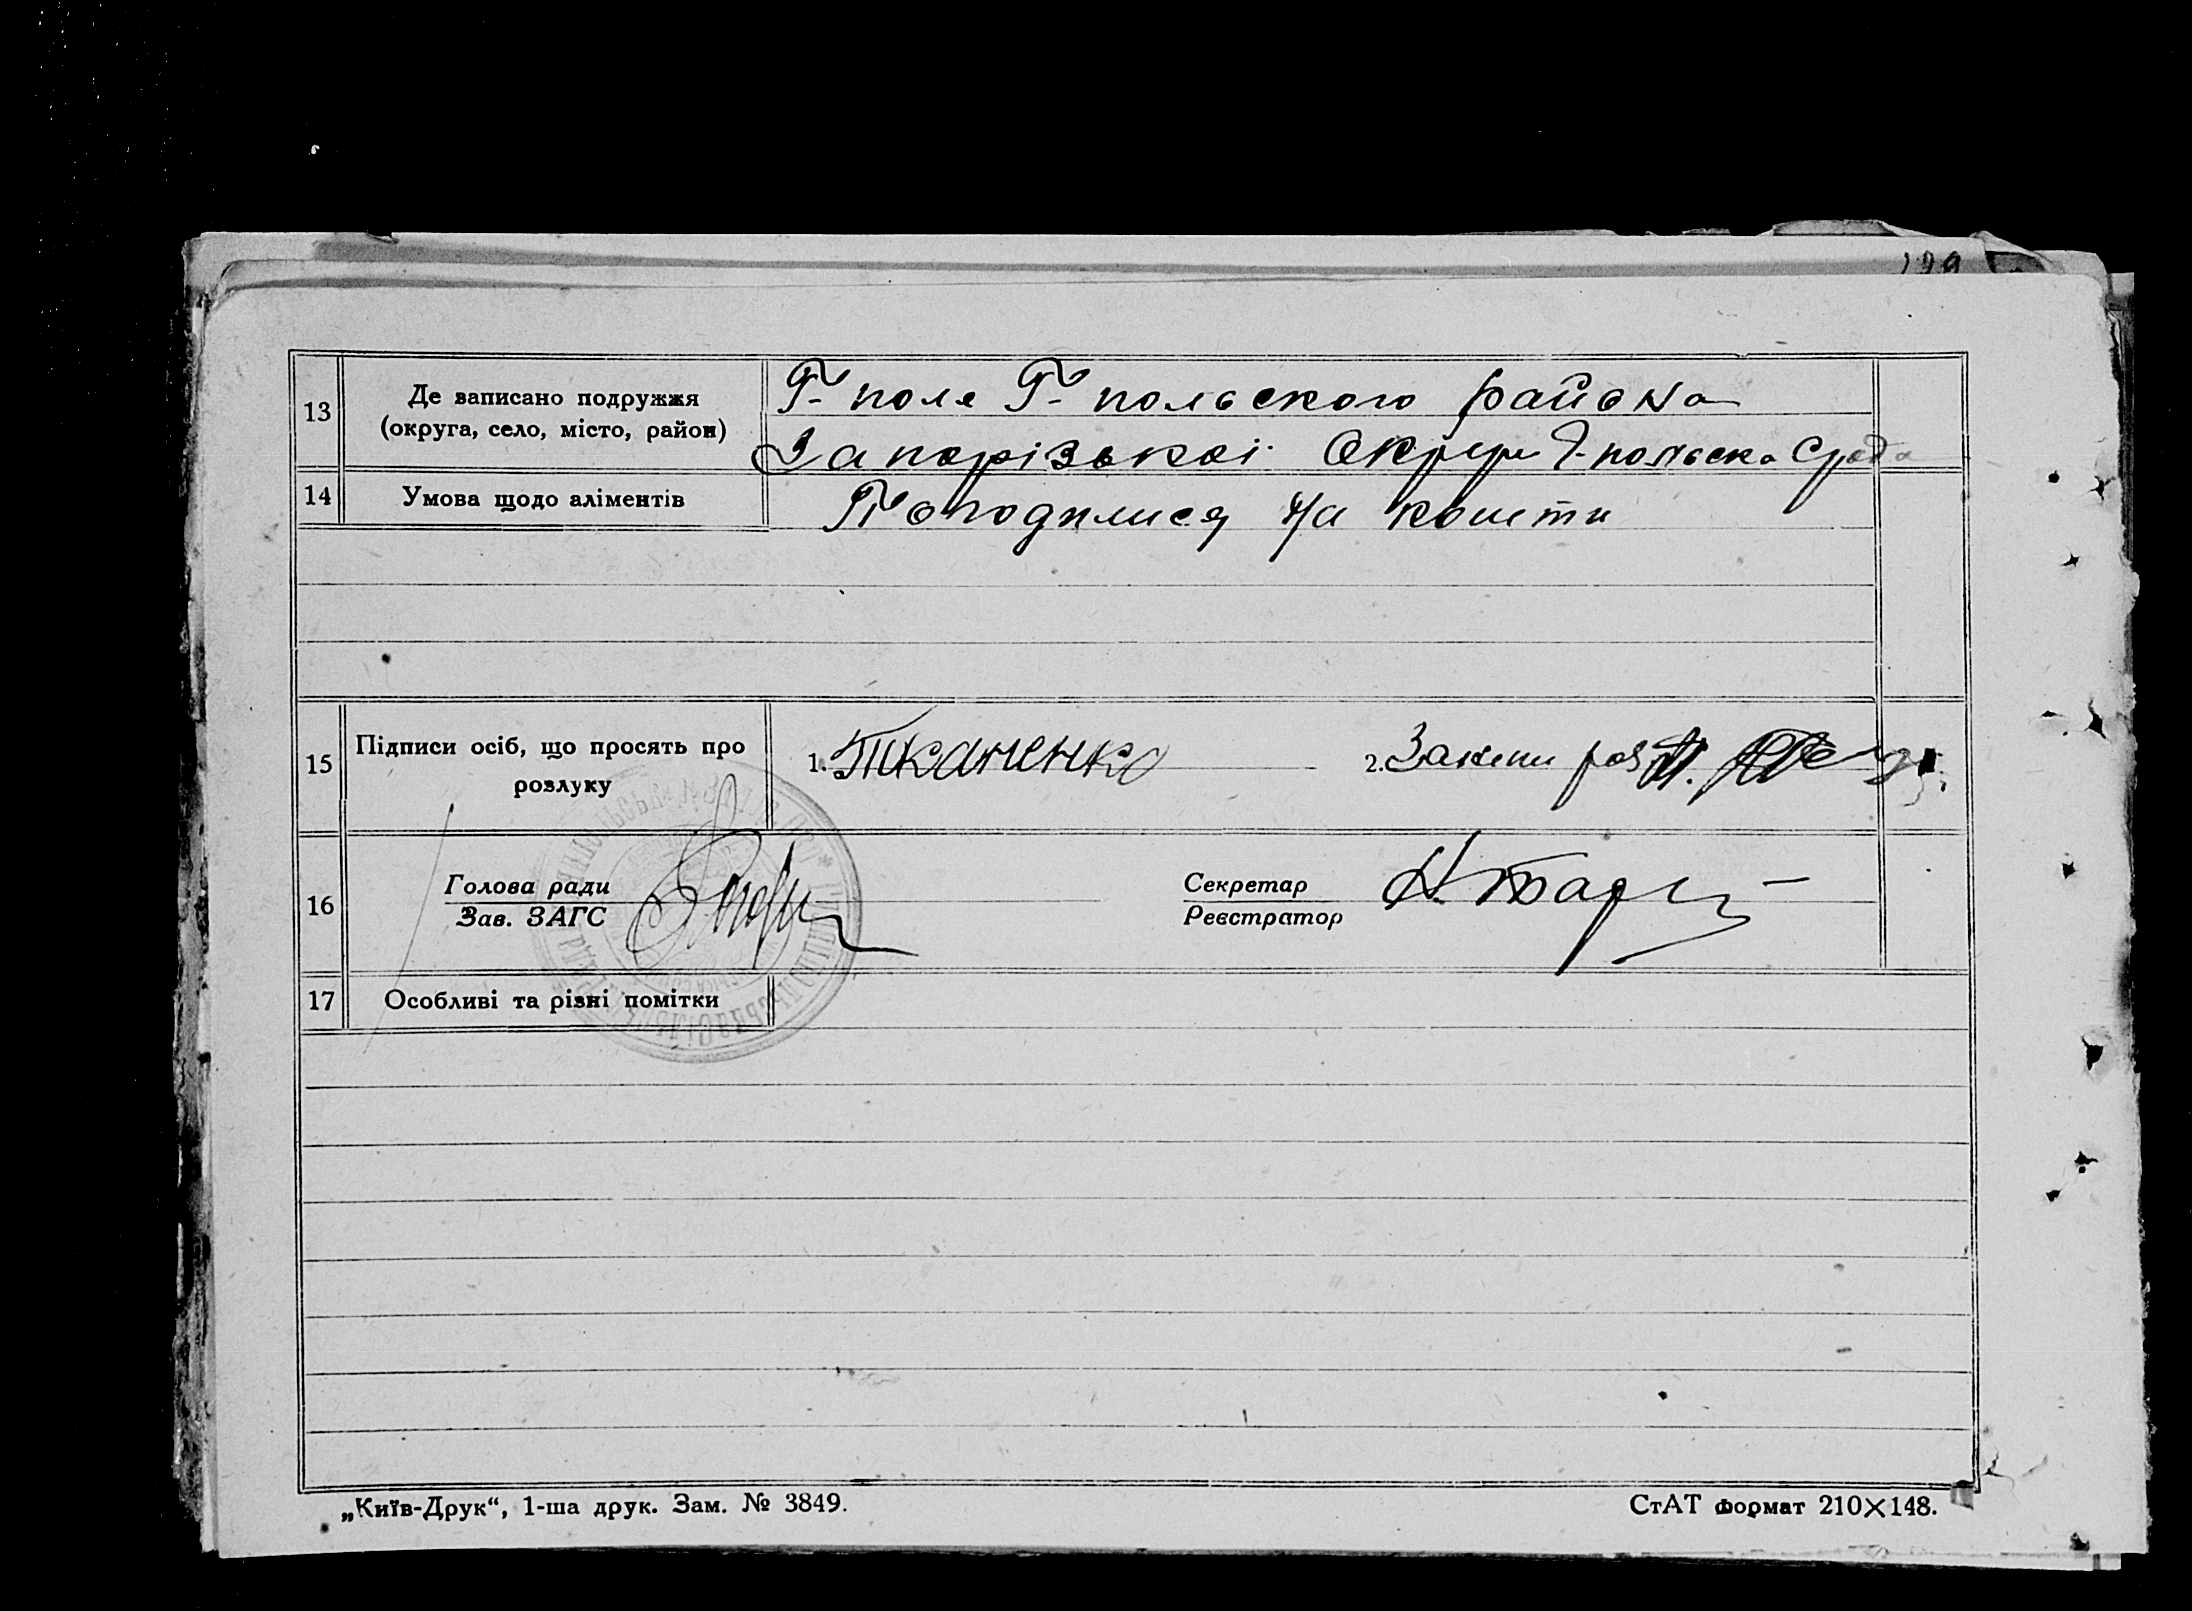 129
13 Де записано подружжя
(округа, село, місто, район)
Г-поле Г-польского района
Запорізької Округи Г-польска Срада
14 Умова щодо аліментів
Погодилися на кошти
15 Підписи осіб, що просять про
розлуку
1. Ткаченко 2.
16 Голова ради
Зав. ЗАГС
Секретар
Реєстратор
17 Особливі та різні помітки
„Київ-Друк“, 1-ша друк. Зам. № 3849.
СтАТ формат 210×148.